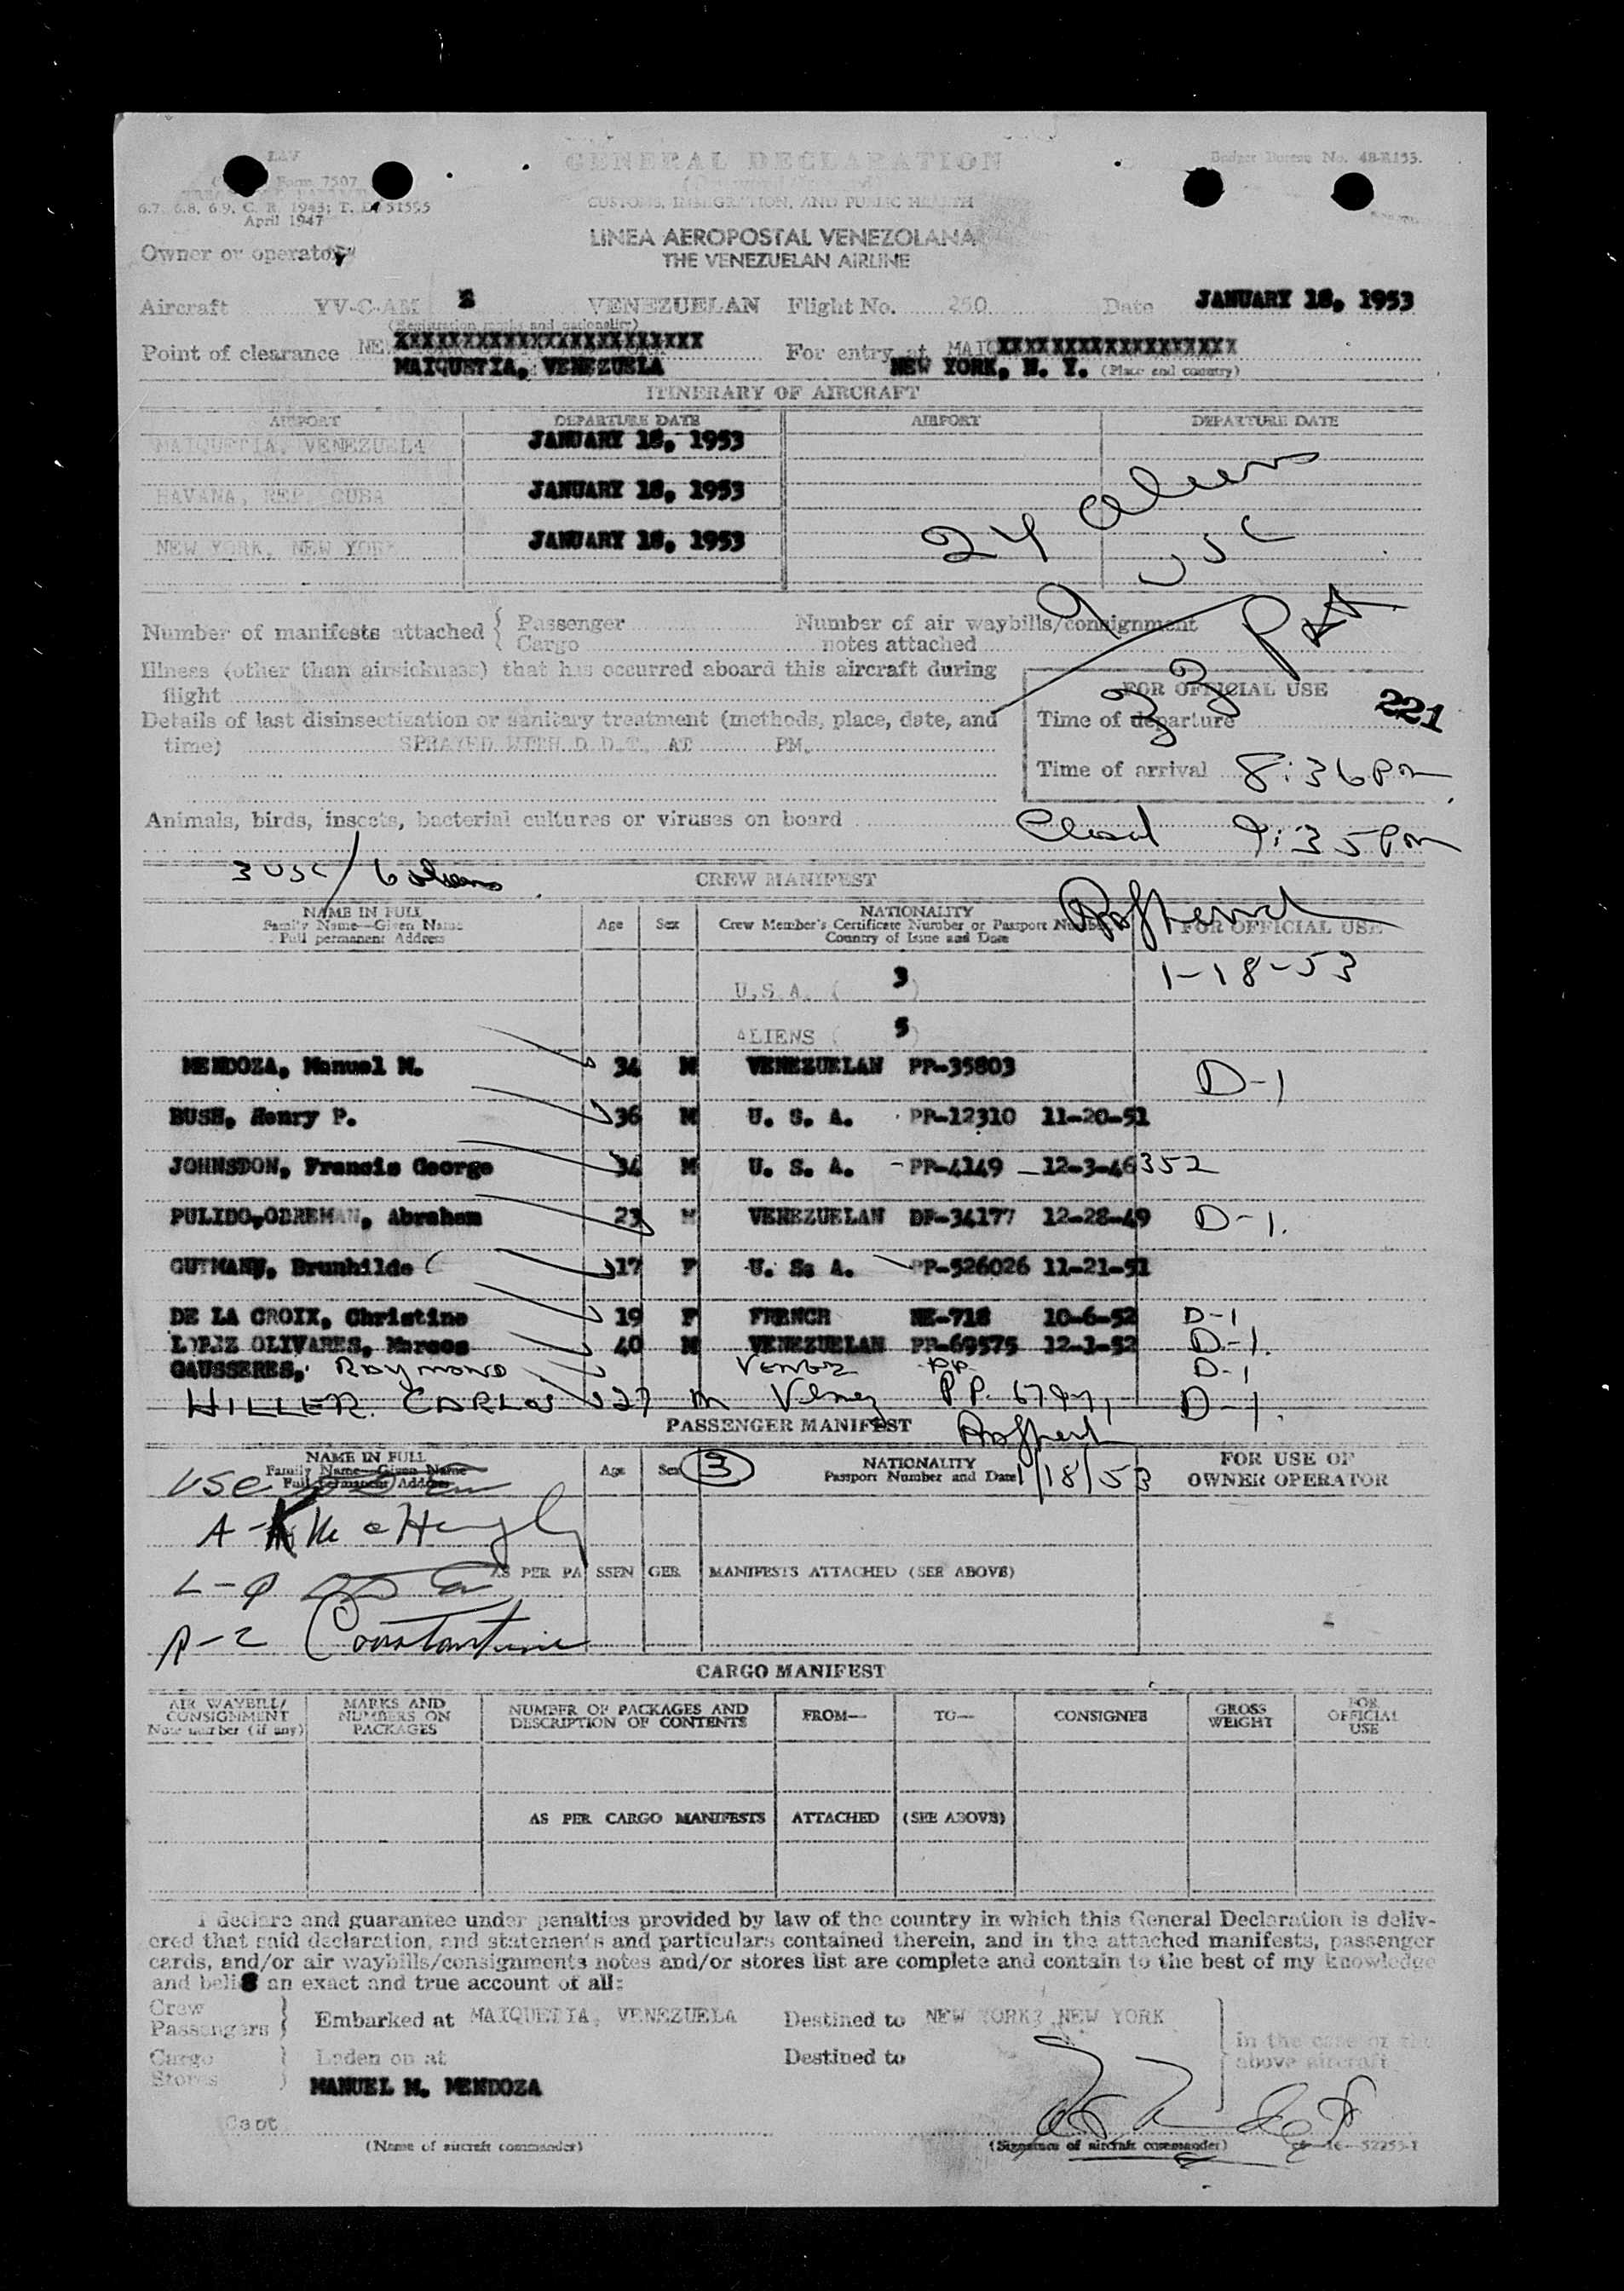 LAV
GENERAL DECLARATION
Budget Bureau No. 48-R155.
Form 7507
6.7, 6.8, 6.9, C. R. 1943; T. D. 51595
April 1947
CUSTOMS, IMMIGRATION, AND PUBLIC HEALTH
LINEA AEROPOSTAL VENEZOLANA
Owner or operator
THE VENEZUELAN AIRLINE
Aircraft YV-C-AM VENEZUELAN Flight No. 250 Date JANUARY 18, 1953
(Registration marks and nationality)
Point of clearance XXXXXXXXXXXXXXXXXXXXXXX For entry at MAIQXXXXXXXXXXXXXXXXXX
MAIQUETIA, VENEZUELA NEW YORK, N. Y. (Place and country)
ITINERARY OF AIRCRAFT
AIRPORT DEPARTURE DATE AIRPORT DEPARTURE DATE
MAIQUETIA, VENEZUELA JANUARY 18, 1953
HAVANA, REP. CUBA JANUARY 18, 1953
24 aliens
NEW YORK, NEW YORK JANUARY 18, 1953
9 USC
Number of manifests attached { Passenger
Cargo
Number of air waybills/consignment
notes attached
33
Illness (other than airsickness) that has occurred aboard this aircraft during
flight
FOR OFFICIAL USE
221
Details of last disinsectization or sanitary treatment (methods, place, date, and
time) SPRAYED WITH D.D.T. AT PM.
Time of departure
Time of arrival 8:36 PM
Animals, birds, insects, bacterial cultures or viruses on board
Closed 9:35 PM
3 USC / 6 aliens
CREW MANIFEST
NAME IN FULL
Family Name—Given Name
Full permanent Address
Age Sex
NATIONALITY
Crew Member's Certificate Number or Passport Number
Country of Issue and Date
FOR OFFICIAL USE
U.S.A. ( 3 ) 1-18-53
ALIENS ( 5 )
MENDOZA, Manuel M. 34 M VENEZUELAN PP-35803 D-1
BUSH, Henry P. 36 M U. S. A. PP-12310 11-20-51
JOHNSTON, Francis George 34 M U. S. A. PP-4149 12-3-46 352
PULIDO,OBREMAN, Abraham 23 M VENEZUELAN DP-34177 12-28-49 D-1.
GUTMANN, Brunhilde 17 F U. S. A. PP-526026 11-21-51
DE LA CROIX, Christine 19 F FRENCH NE-718 10-6-52 D-1
LOPEZ OLIVARES, Marcos 40 M VENEZUELAN PP-69575 12-1-52 D-1.
GAUSSERES, RAYMOND VENEZ PP. D-1
HILLER CARLOS 27 M Venez PP. D-1.
PASSENGER MANIFEST
NAME IN FULL
Family Name—Given Name
Full permanent Address
Age Sex 3
NATIONALITY
Passport Number and Date 1/18/53
FOR USE OF
OWNER OPERATOR
USC
A-K
AS PER PASSENGER MANIFESTS ATTACHED (SEE ABOVE)
L-Q
R-Z Constantine
CARGO MANIFEST
AIR WAYBILL/
CONSIGNMENT
Note number (if any)
MARKS AND
NUMBERS ON
PACKAGES
NUMBER OF PACKAGES AND
DESCRIPTION OF CONTENTS
FROM— TO— CONSIGNEE
GROSS
WEIGHT
FOR
OFFICIAL
USE
AS PER CARGO MANIFESTS ATTACHED (SEE ABOVE)
I declare and guarantee under penalties provided by law of the country in which this General Declaration is deliv-
ered that said declaration, and statements and particulars contained therein, and in the attached manifests, passenger
cards, and/or air waybills/consignments notes and/or stores list are complete and contain to the best of my knowledge
and belief an exact and true account of all:
Crew
Passengers } Embarked at MAIQUETIA, VENEZUELA Destined to NEW YORK, NEW YORK
in the case of the
above aircraft
Cargo
Stores } Laden on at Destined to
MANUEL M. MENDOZA
Capt
(Name of aircraft commander) (Signature of aircraft commander)